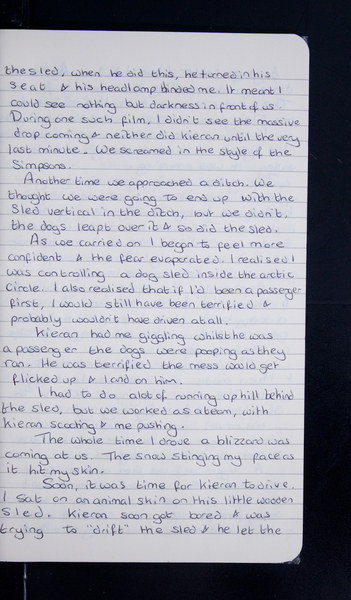 the sled, when he did this, he turned in his
seat & his headlamp blinded me. It meant I
could see nothing but darkness in front of us.
During one such film, I didn't see the massive
drop coming & neither did Kieran until the very
last minute. We screamed in the style of the
Simpsons.
Another time we approached a ditch. We
thought we were going to end up with the
sled vertical in the ditch, but we didn't.
the dogs leapt over it & so did the sled.
As we carried on I began to feel more
confident & the fear evaporated. I realised I
was controlling a dog sled inside the arctic
circle. I also realised that if I'd been a passenger
first, I would still have been terrified &
probably wouldn't have driven at all.
Kieran had me giggling whilst he was
a passenger the dogs were pooping as they
ran. He was terrified the mess would get
flicked up & land on him.
I had to do alot of running up hill behind
the sled, but we worked as a team, with
Kieran scooting & me pushing.
The whole time I drove a blizzard was
coming at us. The snow stinging my face as
it hit my skin.
Soon, it was time for Kieran to drive.
I sat on an animal skin on this little wooden
sled. Kieran soon got bored & was
trying to "drift" the sled & he let the